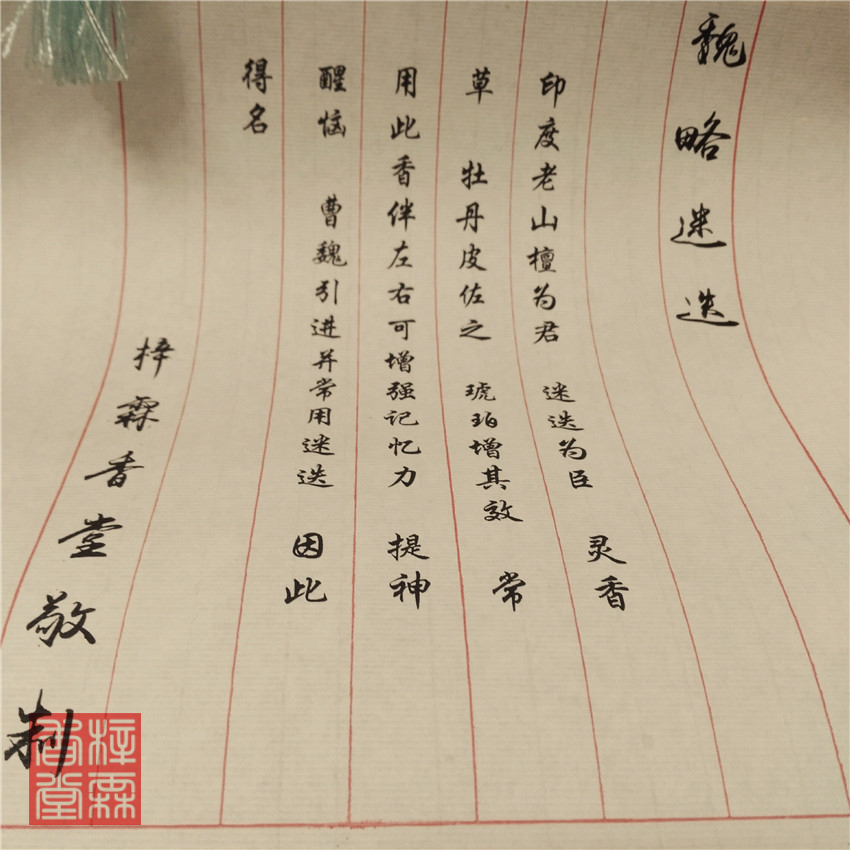 魏略迷迭
印度老山檀为君 迷迭为臣 灵香
草 牡丹皮佐之 琥珀增其效 常
用此香伴左右可增强记忆力 提神
醒恼 曹魏引进并常用迷迭 因此
得名
梓霖香堂敬制
梓霖香堂